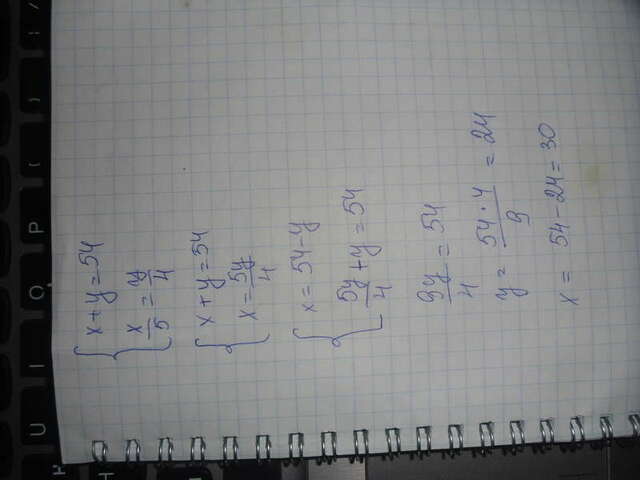 U I O P
x + y = 54
x/5 = y/4
x + y = 54
x = 5y/4
x = 54 - y
5y/4 + y = 54
9y/4 = 54
y = 54 · 4 / 9 = 24
x = 54 - 24 = 30